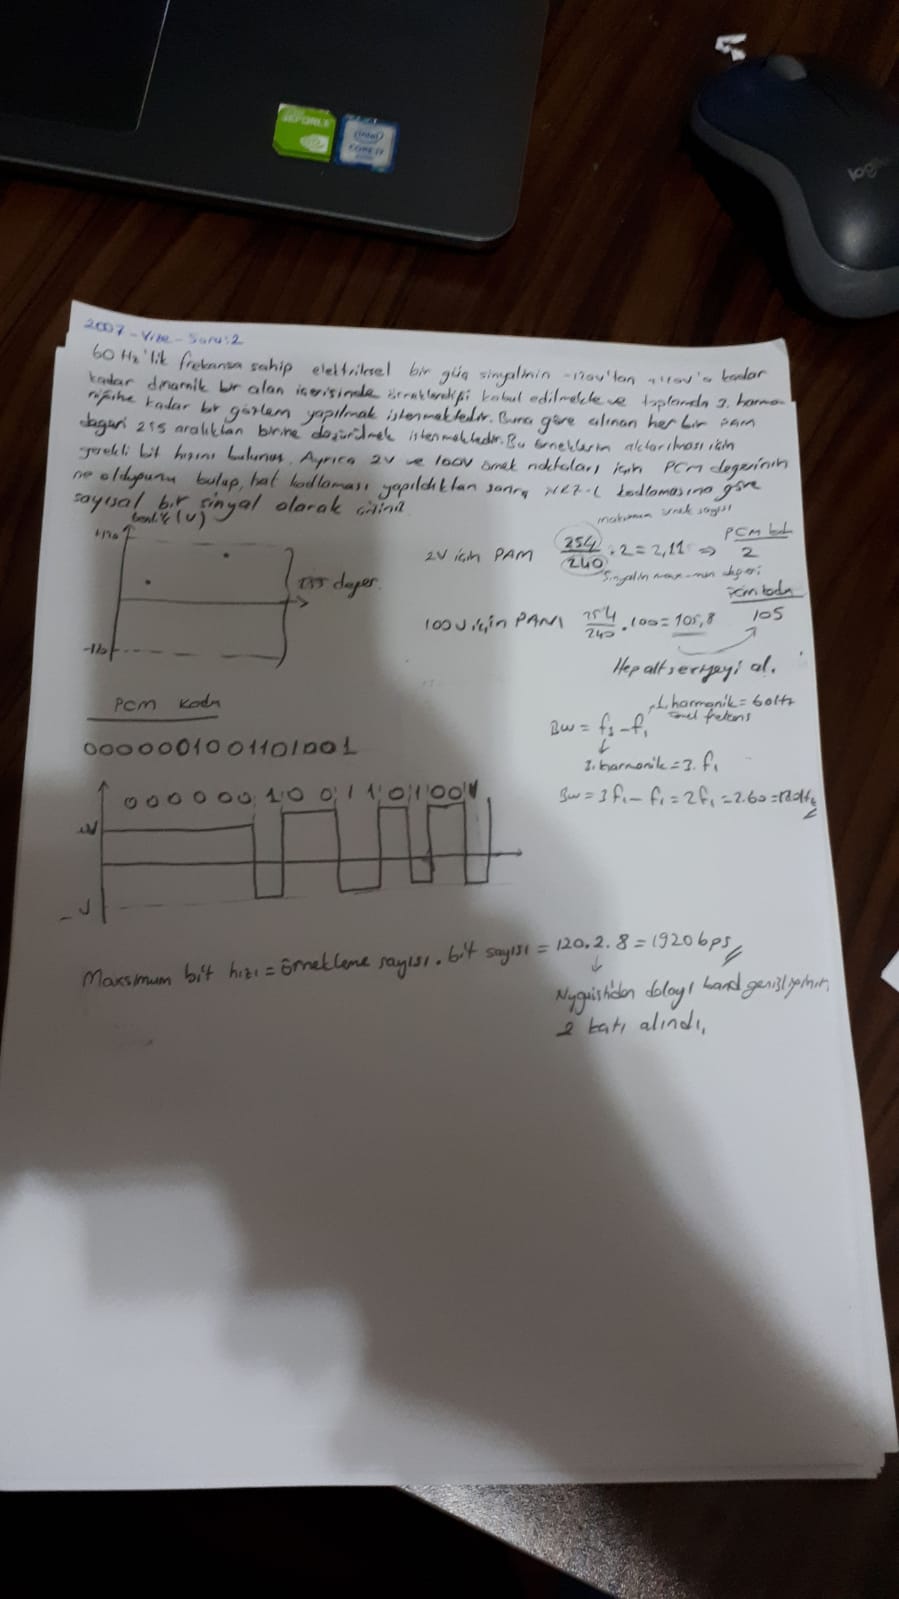 GEFORCE
intel
CORE i7
logi
2007-Vize-Soru:2
60 Hz'lik frekansa sahip elektriksel bir güç sinyalinin -120v'tan +120v'a kadar
kadar dinamik bir alan içerisinde örneklendiği kabul edilmekte ve toplamda 3. harmo-
niğine kadar bir gözlem yapılmak istenmektedir. Buna göre alınan her bir PAM
değeri 255 aralıktan birine düşürülmek istenmektedir. Bu örneklerin aktarılması için
gerekli bit hızını bulunuz. Ayrıca 2V ve 100V örnek noktaları için PCM değerinin
ne olduğunu bulup, hat kodlaması yapıldıktan sonra NRZ-L kodlamasına göre
sayısal bir sinyal olarak çiziniz
maksimum örnek sayısı
genlik (V)
+120
255 değer.
-120
2V için PAM 254/240 . 2 = 2,11 => PCM kod 2
Sinyalin max-min değeri
100V için PAM 254/240 . 100 = 105,8 PCM kodu 105
Hep alt seviyeyi al.
PCM kodu
0000001001101001
BW = f3 - f1 1. harmonik = 60Hz temel frekans
3. harmonik = 3. f1
BW = 3f1 - f1 = 2f1 = 2.60 = 120Hz
0 0 0 0 0 0 1 0 0 1 1 0 1 0 0 1
+V
-V
Maksimum bit hızı = Örnekleme sayısı . bit sayısı = 120.2.8 = 1920 bps
Nyquist'den dolayı band genişliğinin
2 katı alındı.